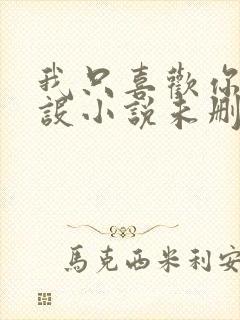 我只喜歡你
設小說未刪
馬克西米利安